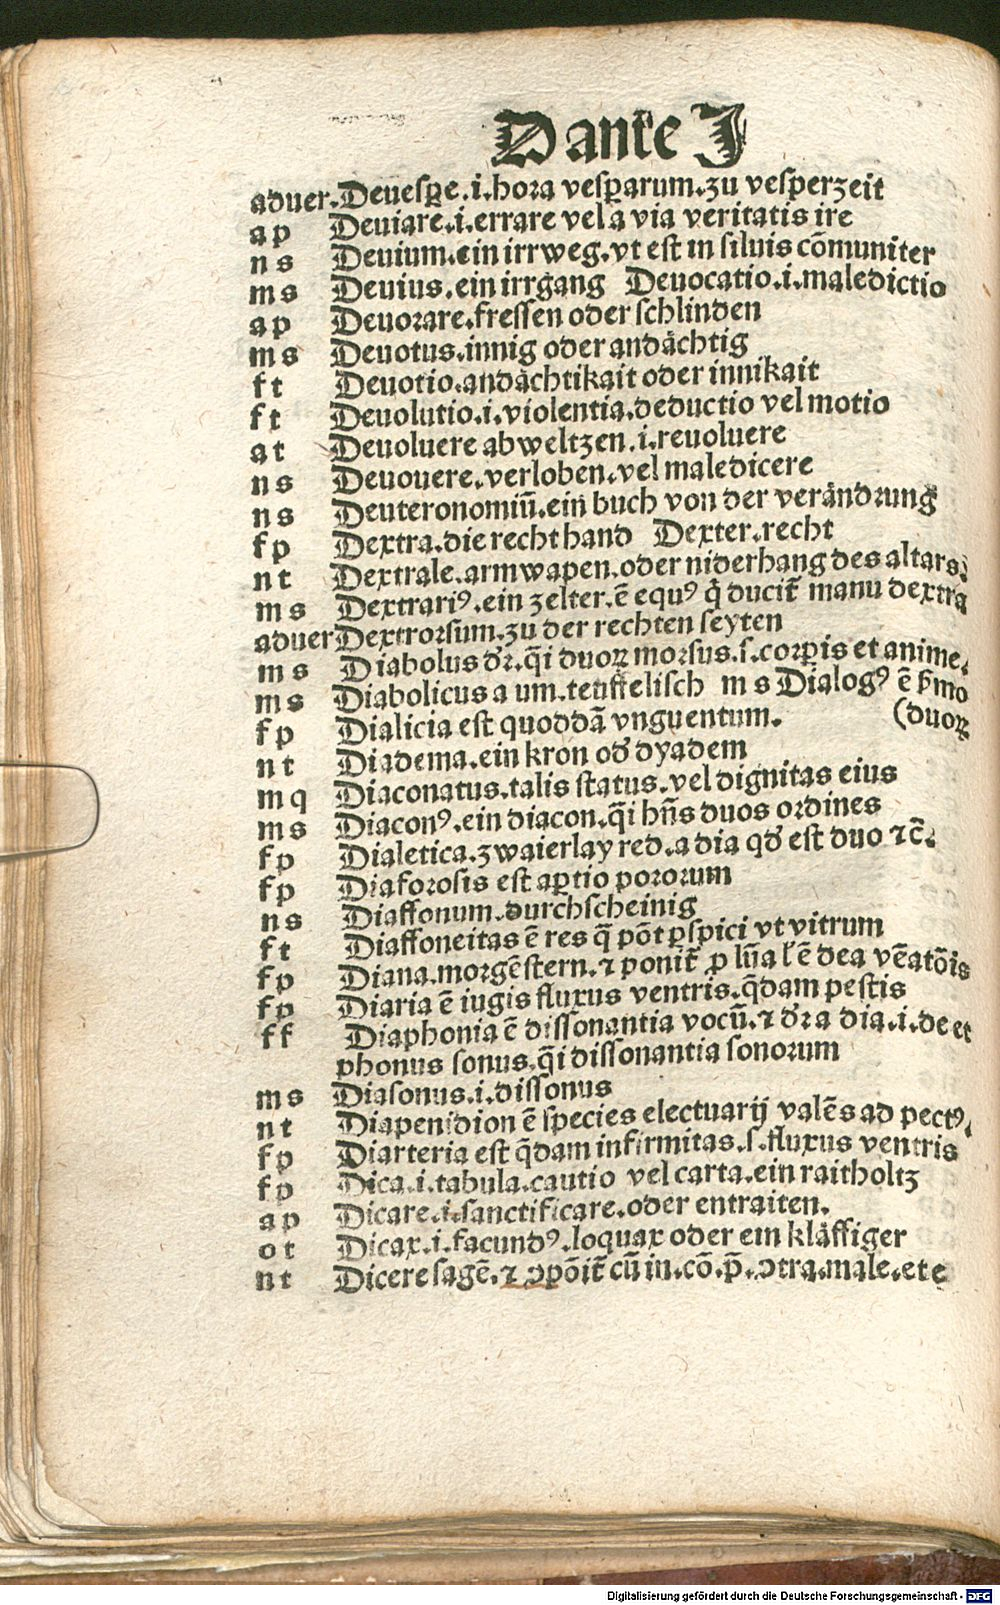 Dante J
aduer. Deueſꝑe.i.hora veſꝑarum.zu veſperzeit
ap Deuiare.i.errare vel a via veritatis ire
ns Deuium.ein irrweg.vt eſt in ſiluis cōmuniter
ms Deuius.ein irrgang Deuocatio.i.maledictio
ap Deuorare.freſſen oder ſchlinden
ms Deuotus.innig oder andächtig
ft Deuotio.andächtikait oder innikait
ft Deuolutio.i.violentia.deductio vel motio
at Deuoluere abweltzen.i.reuoluere
ns Deuouere.verloben.vel maledicere
ns Deuteronomiū.ein buch von der verändrung
fp Dextra.die recht hand Dexter.recht
nt Dextrale.armwapen.oder niderhang des altars.
ms Dextrariꝰ.ein zelter.ē equꝰ q̄ ducit̄ manu dextra
aduer Dextrorſum.zu der rechten ſeyten
ms Diabolus dr̄.q̄i duoꝝ morſus.ſ.corꝑis et anime.
ms Diabolicus a um.teuffeliſch ms Dialogꝰ ē ẜmo
fp Dialicia eſt quoddā vnguentum. (duoꝝ
nt Diadema.ein kron od̓ dyadem
mq Diaconatus.talis ſtatus.vel dignitas eius
ms Diaconꝰ.ein diacon.q̄i hn̄s duos ordines
fp Dialetica.zwaierlay red.a dia qd̓ eſt duo ⁊c̄.
fp Diaforoſis eſt aꝑtio pororum
ns Diaffonum.durchſcheinig
ft Diaffoneitas ē res q̄ pōt ꝑſpici vt vitrum
fp Diana.morgēſtern.⁊ ponit̄ ꝓ lūa l̓ ē dea vēatōis
fp Diaria ē iugis fluxus ventris.q̄dam peſtis
ff Diaphonia ē diſſonantia vocū.⁊ dr̄ a dia.i.de et
phonus ſonus.q̄i diſſonantia ſonorum
ms Diaſonus.i.diſſonus
nt Diapenidion ē ſpecies electuarij valēs ad pectꝰ.
fp Diarteria eſt q̄dam infirmitas.ſ.fluxus ventris
fp Dica.i.tabula.cautio vel carta.ein raitholtz
ap Dicare.i.ſanctificare.oder entraiten.
ot Dicax.i.facundꝰ.loquax oder ein kläffiger
nt Dicere ſagē.⁊ ꝯpōit̄ cū in.cō.p̄.ꝯtra.male.et e
Digitalisierung gefördert durch die Deutsche Forschungsgemeinschaft - DFG